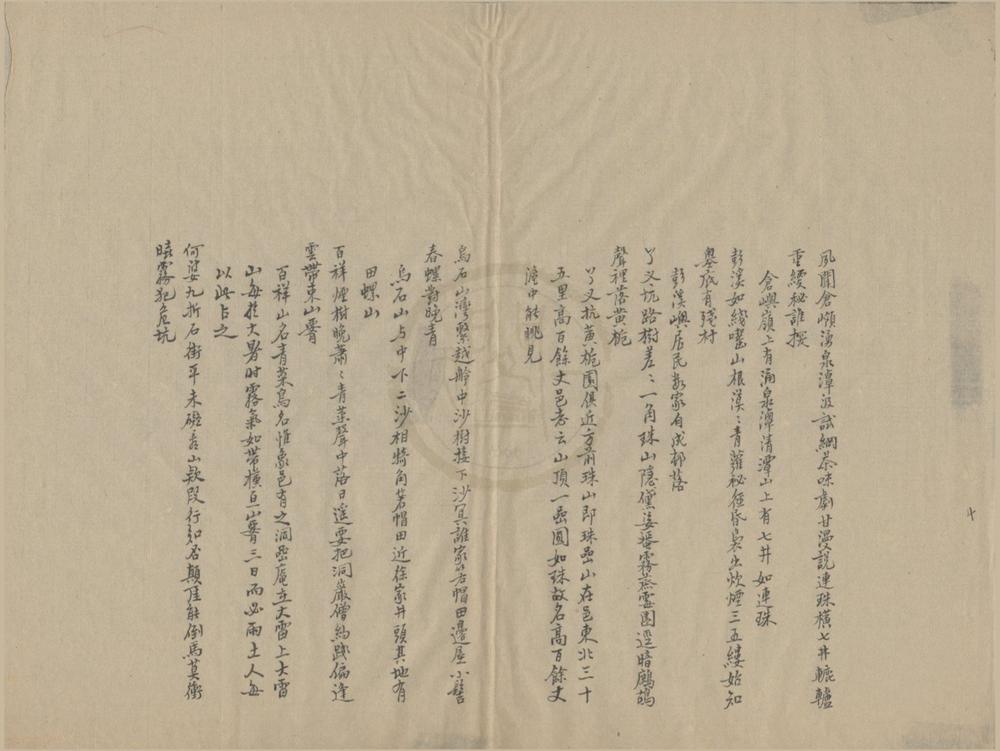 風關倉嶼湧泉潭汲試綱茶味劇甘漫說連珠橫七井轆轤
重綆秘誰探
倉嶼嶺上有涌泉潭清潭山上有七井如連珠
彭溪如綫囓山根漠〻青蘿秘徑昏裊出炊煙三五縷始知
舉底有殘村
彭溪嶼居民數家自成邨落
丫叉坑路樹差〻一角珠山隱黛姿番霧蒸雲園逕暗鷓鴣
聲裡落黄梔
丫叉坑黄梔園俱近方前珠山即珠嵒山在邑東北三十
五里高百餘丈邑志云山頂一嵒圓如珠故名高百餘丈
滄中能眺見
烏石山灣繫越舲中沙樹接下沙冥誰家箬帽田邊屋小髻
春螺對晚青
烏石山与中下二沙相犄角箬帽田近徐家井頭其地有
田螺山
百祥煙樹晚蕭〻青菜聲中落日遥要把洞巖僧約踐偏逢
雲帶束山脊
百祥山名青菜鳥名惟象邑有之洞嵒庵立大雷上大雷
山每於大暑時霧氣如帶横亘山脊三日而必雨土人每
以此占之
何婆九折石街平未磴高山欵段行知否顛厓能倒馬莫衝
曉霧犯危坑